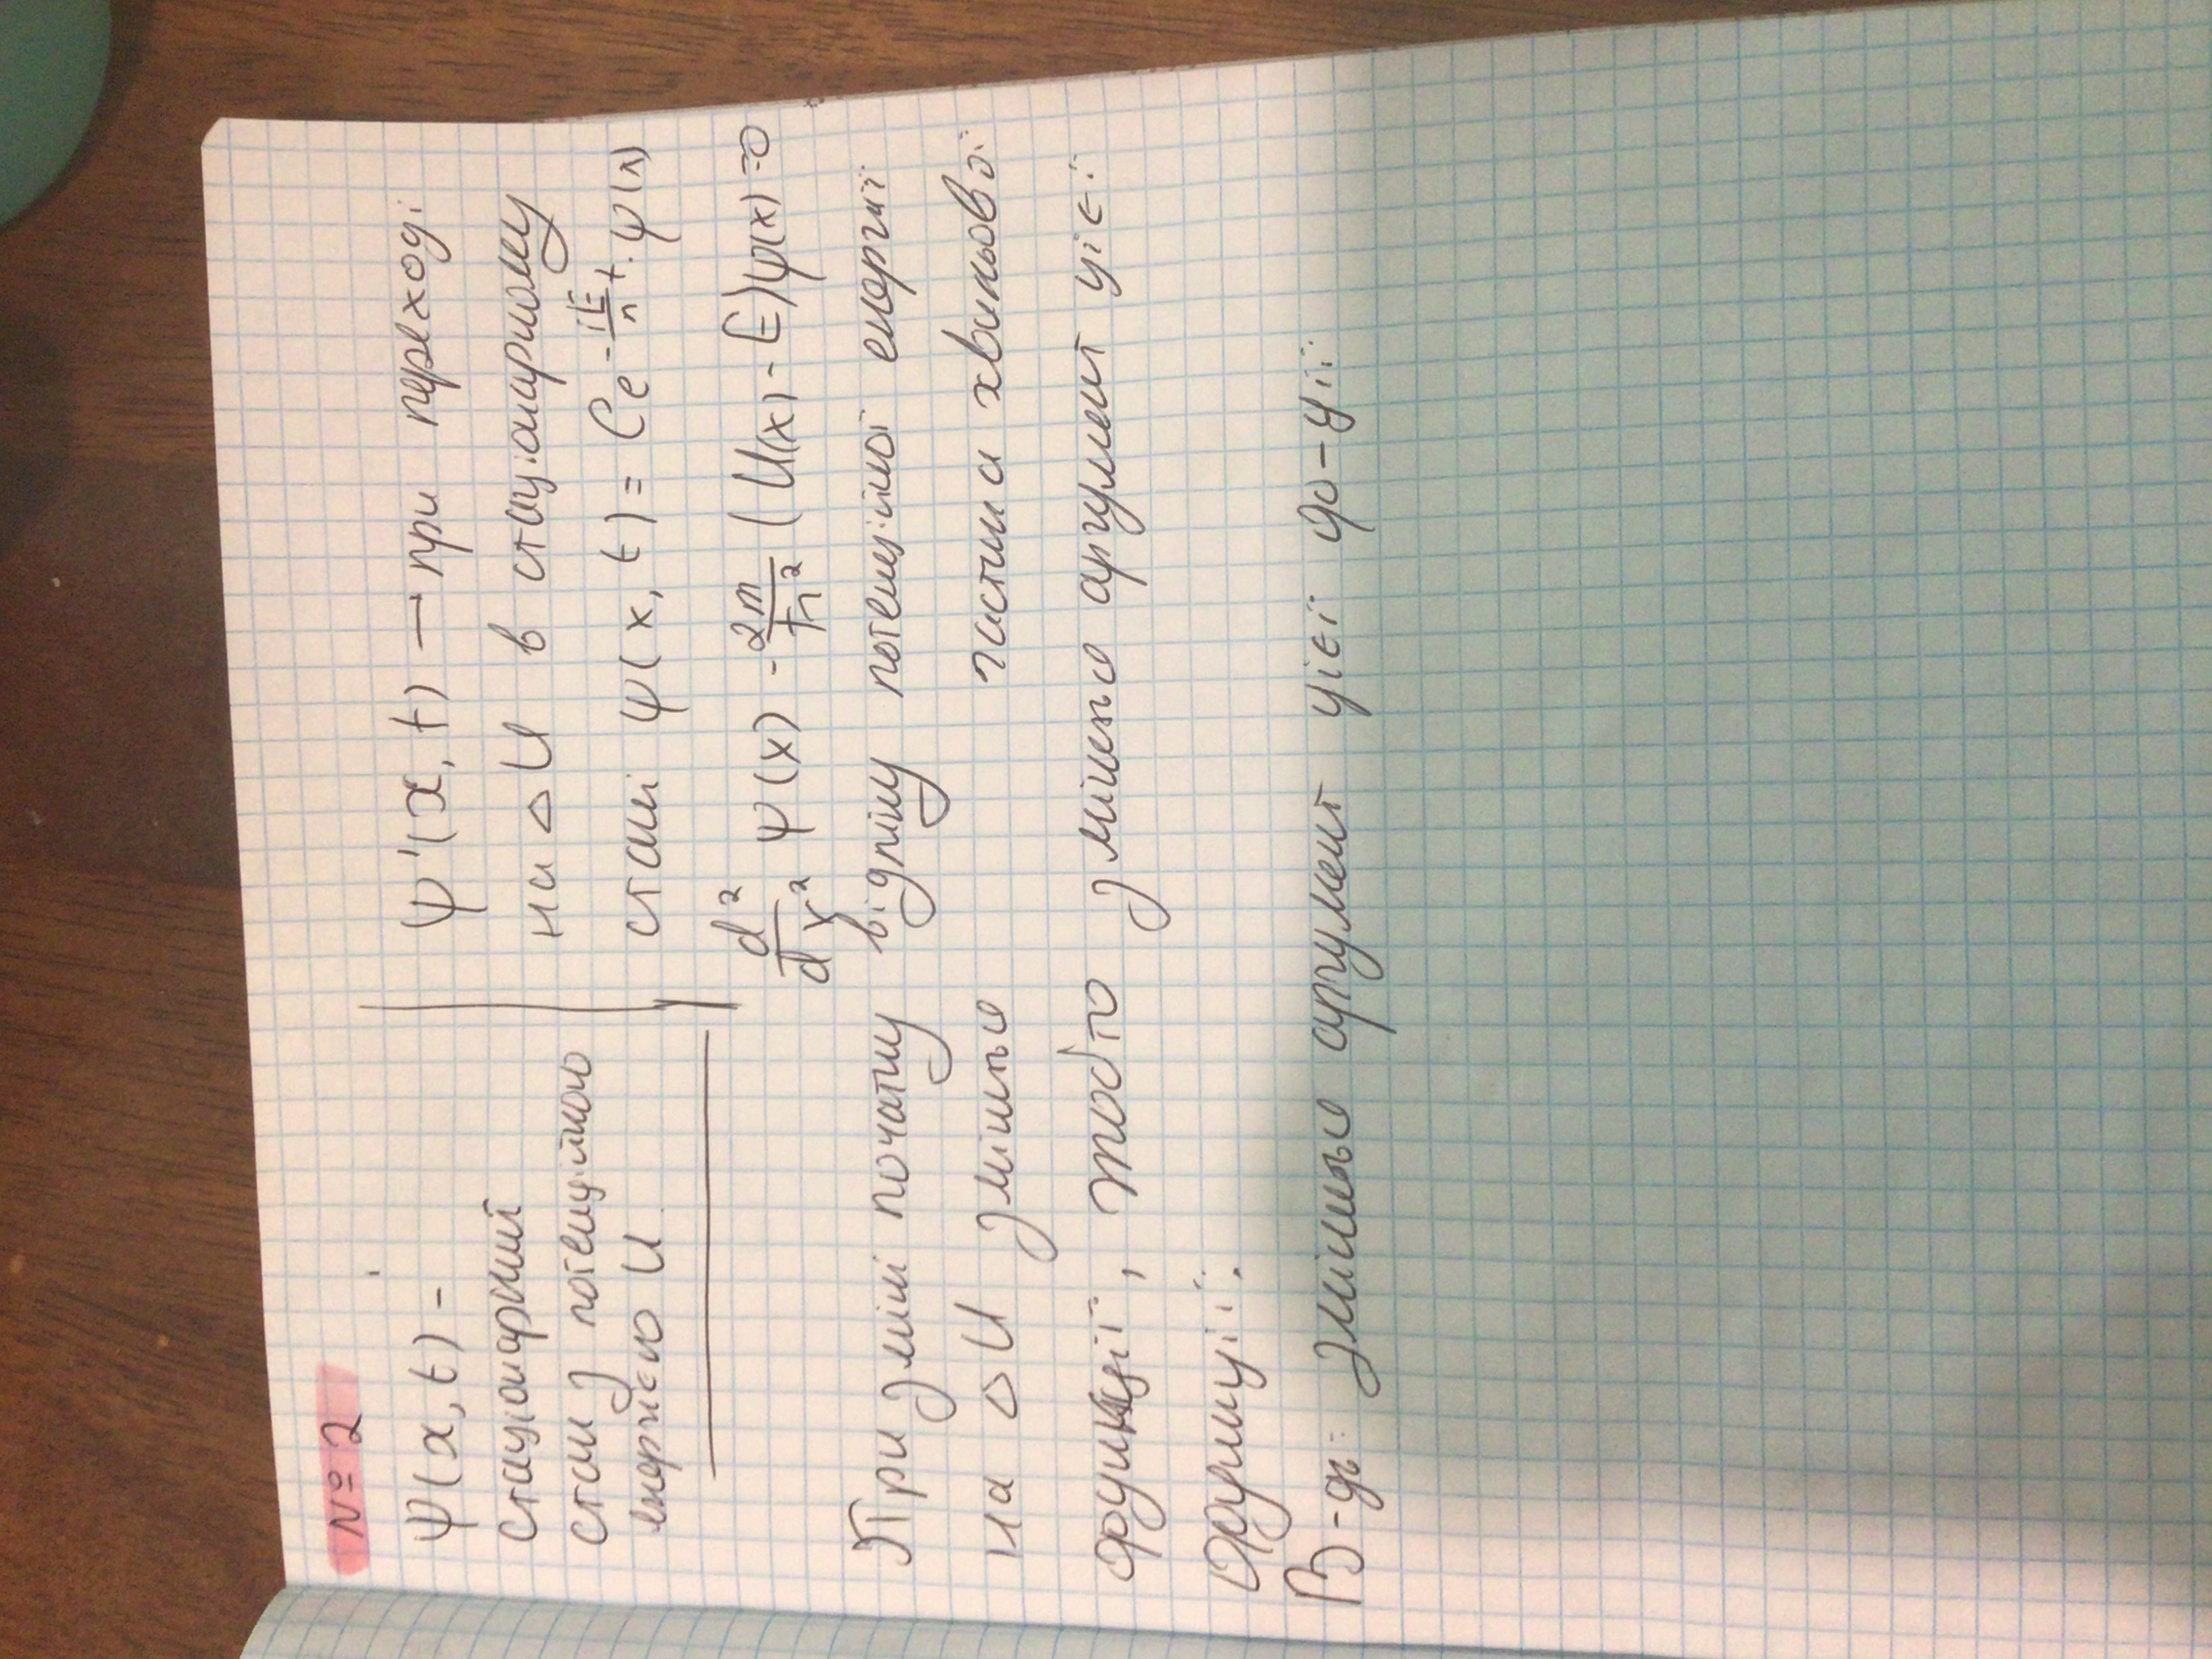 № 2
Ψ(x, t) –
стаціонарний
стан з потенційною
енергією U.
Ψ'(x, t) – при переході
на ΔU в стаціонарному
стані ψ(x, t) = Ce^{-iE/ħ t} · ψ(x)
d²/dx² Ψ(x) - 2m/ħ² (U(x) - E)ψ(x) = 0
При зміні початку відліку потенційної енергії
на ΔU зміниться частина хвильової
функції, тобто зміниться аргумент цієї
функції.
В-дь: зміниться аргумент цієї ф-ції